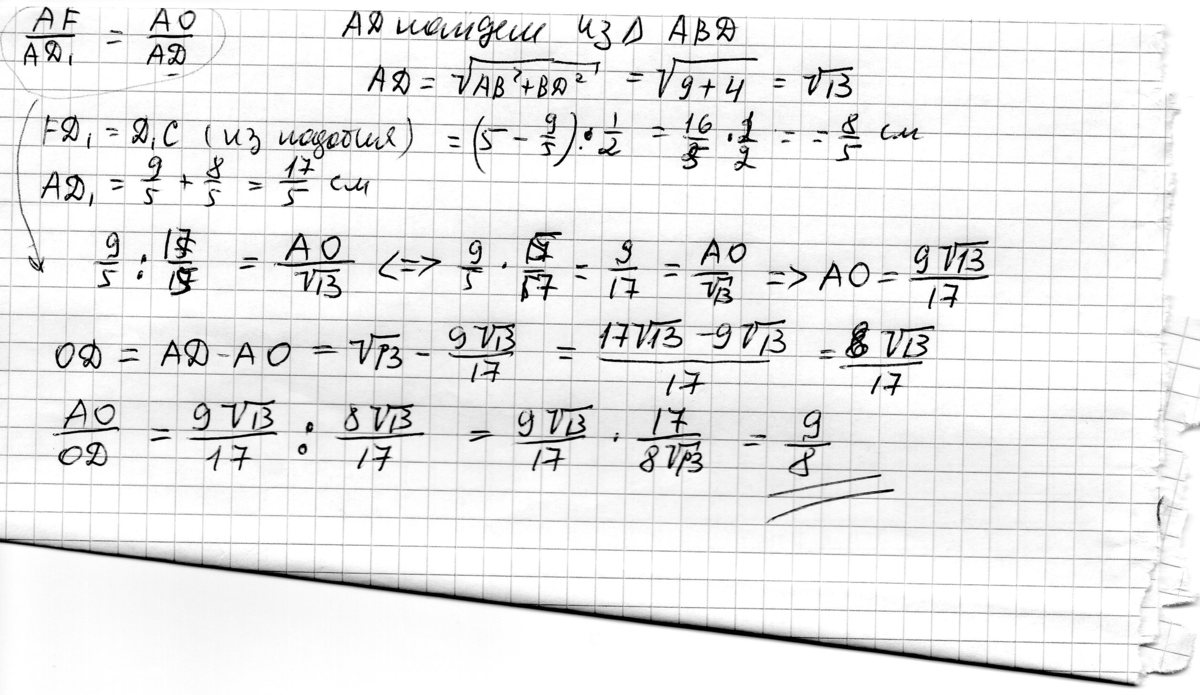 AF/AD₁ = AO/AD AD найдем из Δ ABD
AD = √(AB² + BD²) = √(9+4) = √13
FD₁ = D₁C (из подобия) = (5 - 9/5) · 1/2 = 16/5 · 1/2 = = 8/5 см
AD₁ = 9/5 + 8/5 = 17/5 см
9/5 : 17/5 = AO/√13 <=> 9/5 · 5/17 = 9/17 = AO/√13 => AO = 9√13/17
OD = AD - AO = √13 - 9√13/17 = (17√13 - 9√13)/17 = 8√13/17
AO/OD = 9√13/17 : 8√13/17 = 9√13/17 · 17/8√13 = 9/8